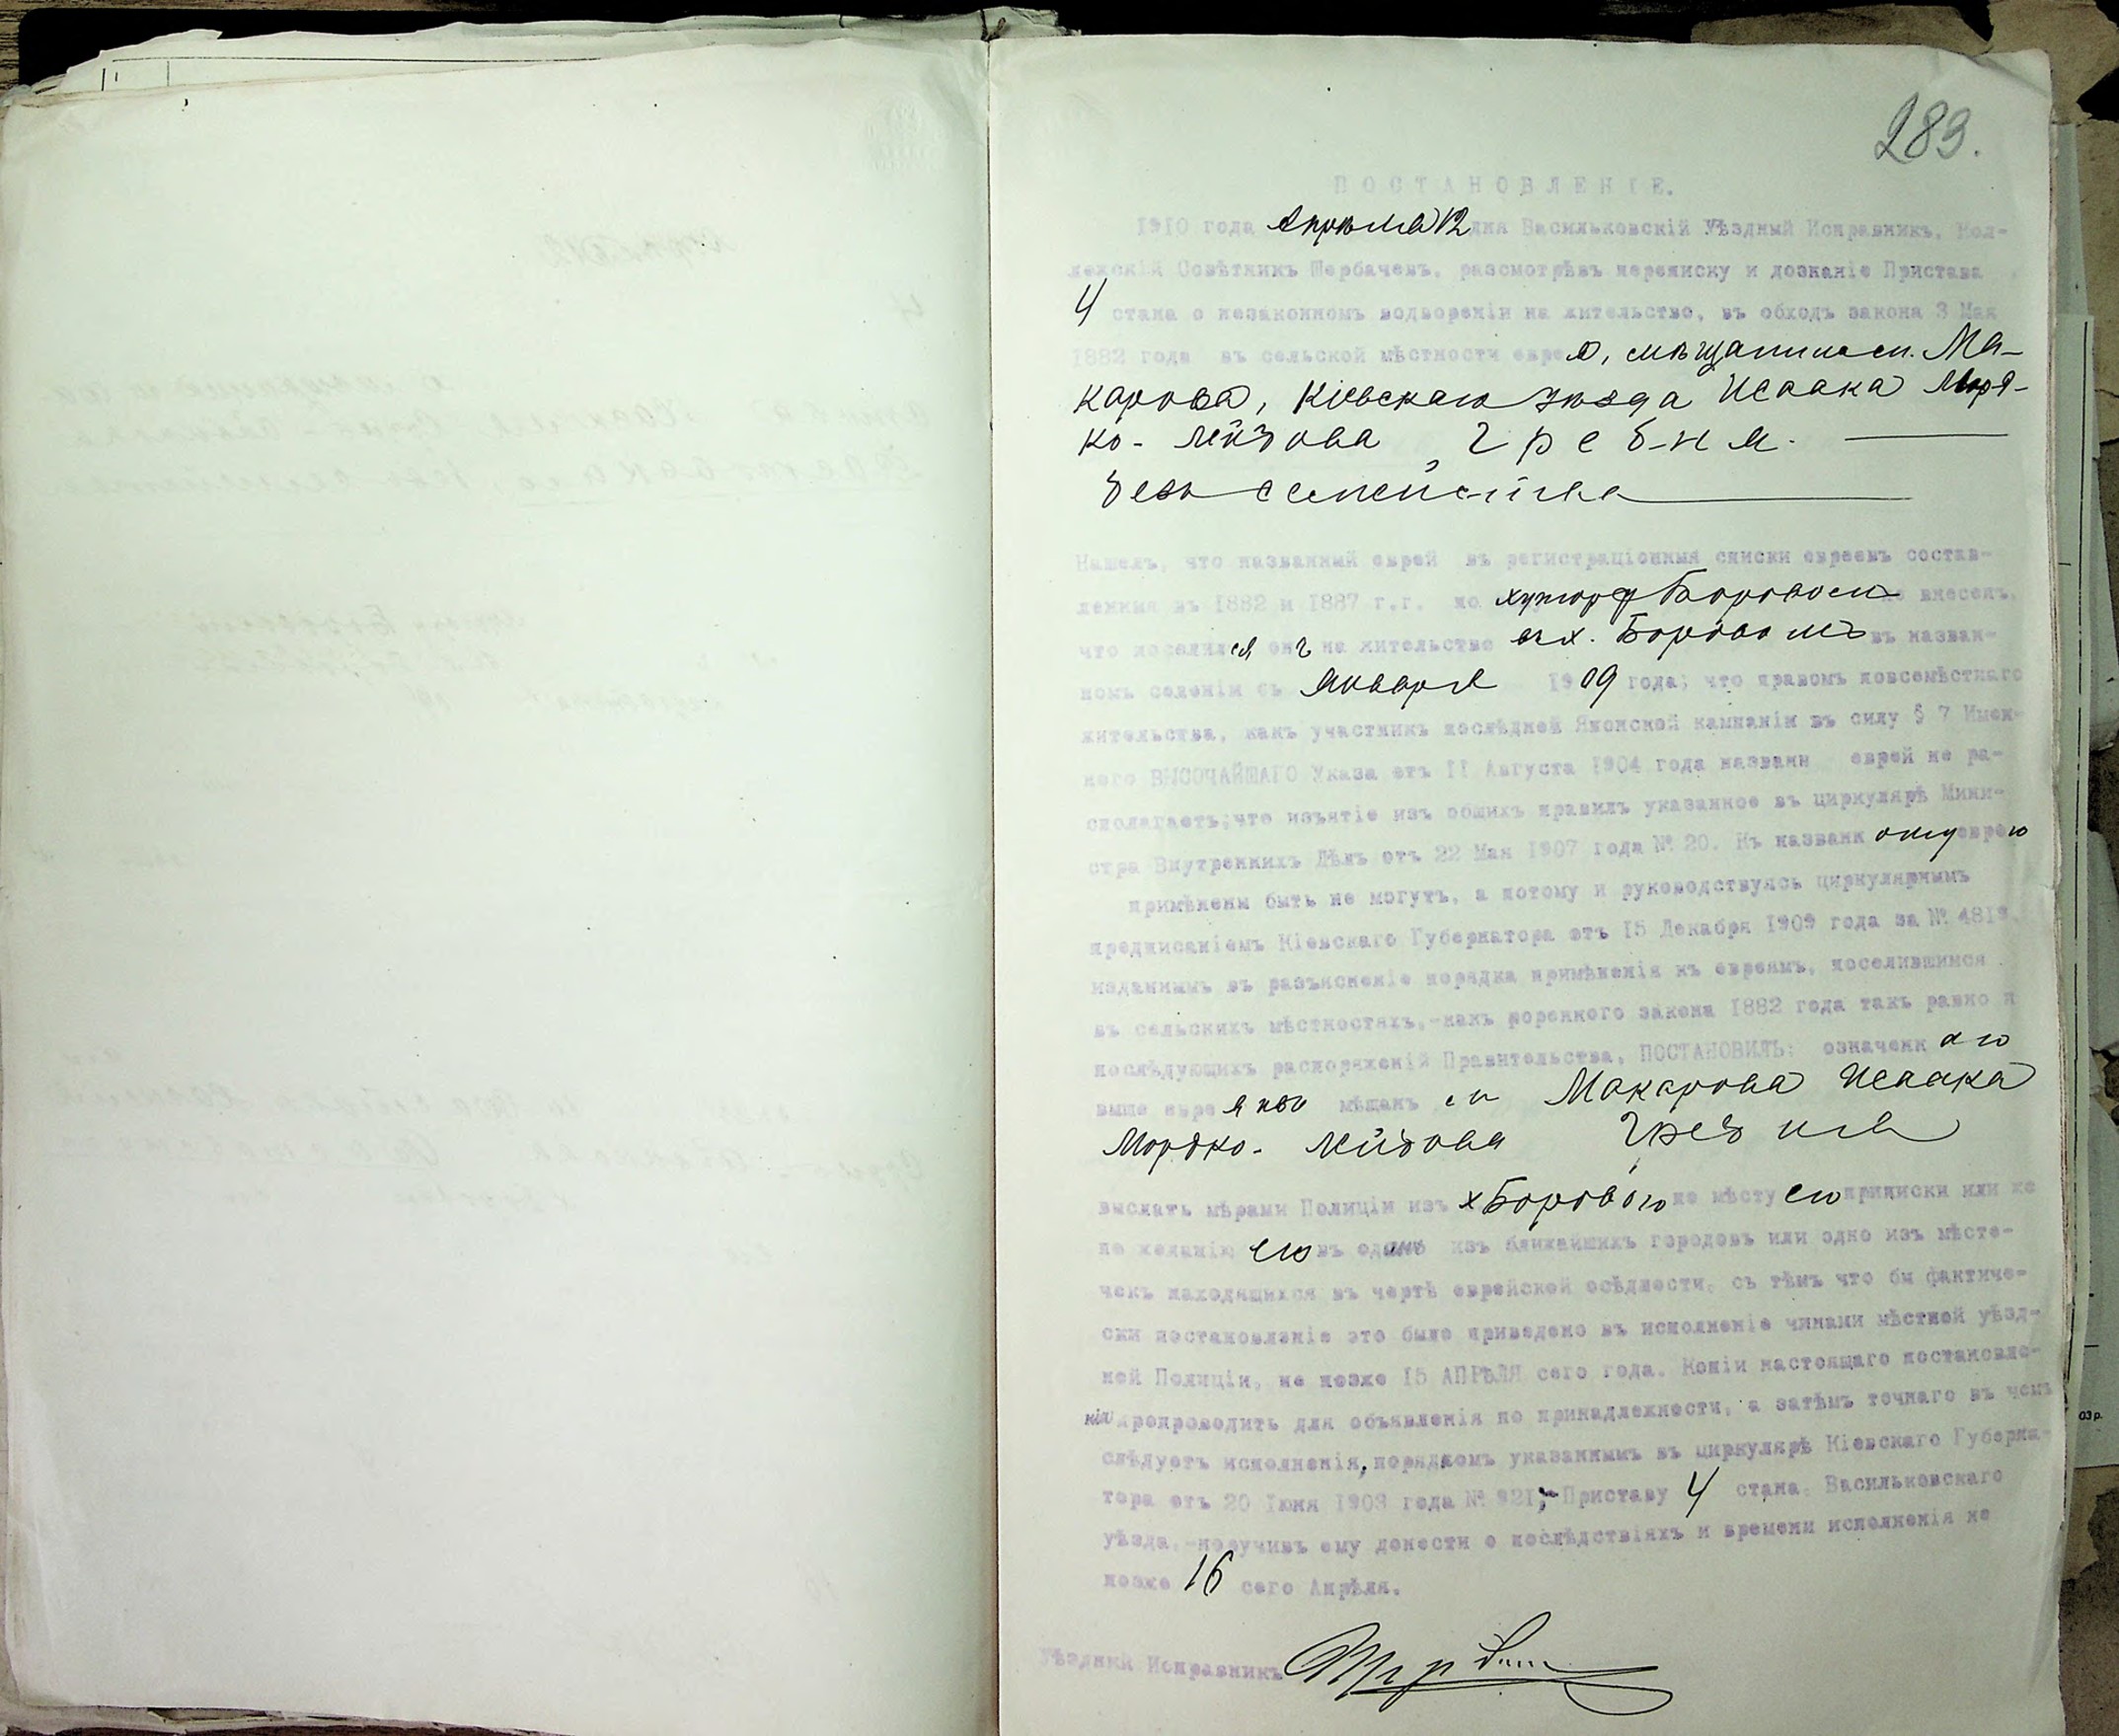 283.
ПОСТАНОВЛЕНІЕ.
1910 года Апрѣля 12 дня Васильковскій Уѣздный Исправникъ, Кол-
лежскій Совѣтникъ Щербачевъ, разсмотрѣвъ переписку и дознаніе Пристава
4 стана о незаконномъ водвореніи на жительство, въ обходъ закона 3 Мая
1882 года въ сельской мѣстности евре мѣщанина м. Ма-
карова, Кіевскаго уѣзда Исаака Мордко-
ко-Лейбова Гребня.
безъ семейства
Нашелъ, что названный еврей въ регистраціонныя списки евреевъ состав-
ленныя въ 1882 и 1887 г.г. по хутору Боровому не внесенъ,
что поселился онъ на жительство въ х. Боровомъ въ назван-
номъ селеніи съ Января 1909 года; что правомъ повсемѣстнаго
жительства, какъ участникъ послѣдней Японской кампаніи въ силу § 7 Имен-
ного ВЫСОЧАЙШАГО Указа отъ 11 Августа 1904 года названн еврей не ра-
сполагаетъ; что изъятіе изъ общихъ правилъ указанное въ циркулярѣ Мини-
стра Внутреннихъ Дѣлъ отъ 22 Мая 1907 года № 20. Къ названному еврею
примѣнены быть не могутъ, а потому и руководствуясь циркулярнымъ
предписаніемъ Кіевскаго Губернатора отъ 15 Декабря 1909 года за №
изданнымъ въ разъясненіе порядка примѣненія къ евреямъ, поселившимся
въ сельскихъ мѣстностяхъ,-какъ коренного закона 1882 года такъ равно и
послѣдующихъ распоряженій Правительства, ПОСТАНОВИЛЪ: означеннаго
выше евре мѣщан м. Макарова Исаака
Мордко-Лейбова Гребня
выслать мѣрами Полиціи изъ х Борового по мѣсту его приписки или же
по желанію его въ одинъ изъ ближайшихъ городовъ или одно изъ мѣсте-
чекъ находящихся въ чертѣ еврейской осѣдлости, съ тѣмъ что бы фактиче-
ски постановленіе это было приведено въ исполненіе чинами мѣстной уѣзд-
ной Полиціи, не позже 15 АПРѢЛЯ сего года. Копіи настоящаго постановле-
нія препроводить для объявленія по принадлежности, а затѣмъ точнаго въ чемъ
слѣдуетъ исполненія, порядкомъ указаннымъ въ циркулярѣ Кіевскаго Губерна-
тора отъ 20 Іюня 1903 года № 921,-Приставу 4 стана Васильковскаго
уѣзда,-поручивъ ему донести о послѣдствіяхъ и времени исполненія не
позже 16 сего Апрѣля.
Уѣздный Исправникъ
03 р.